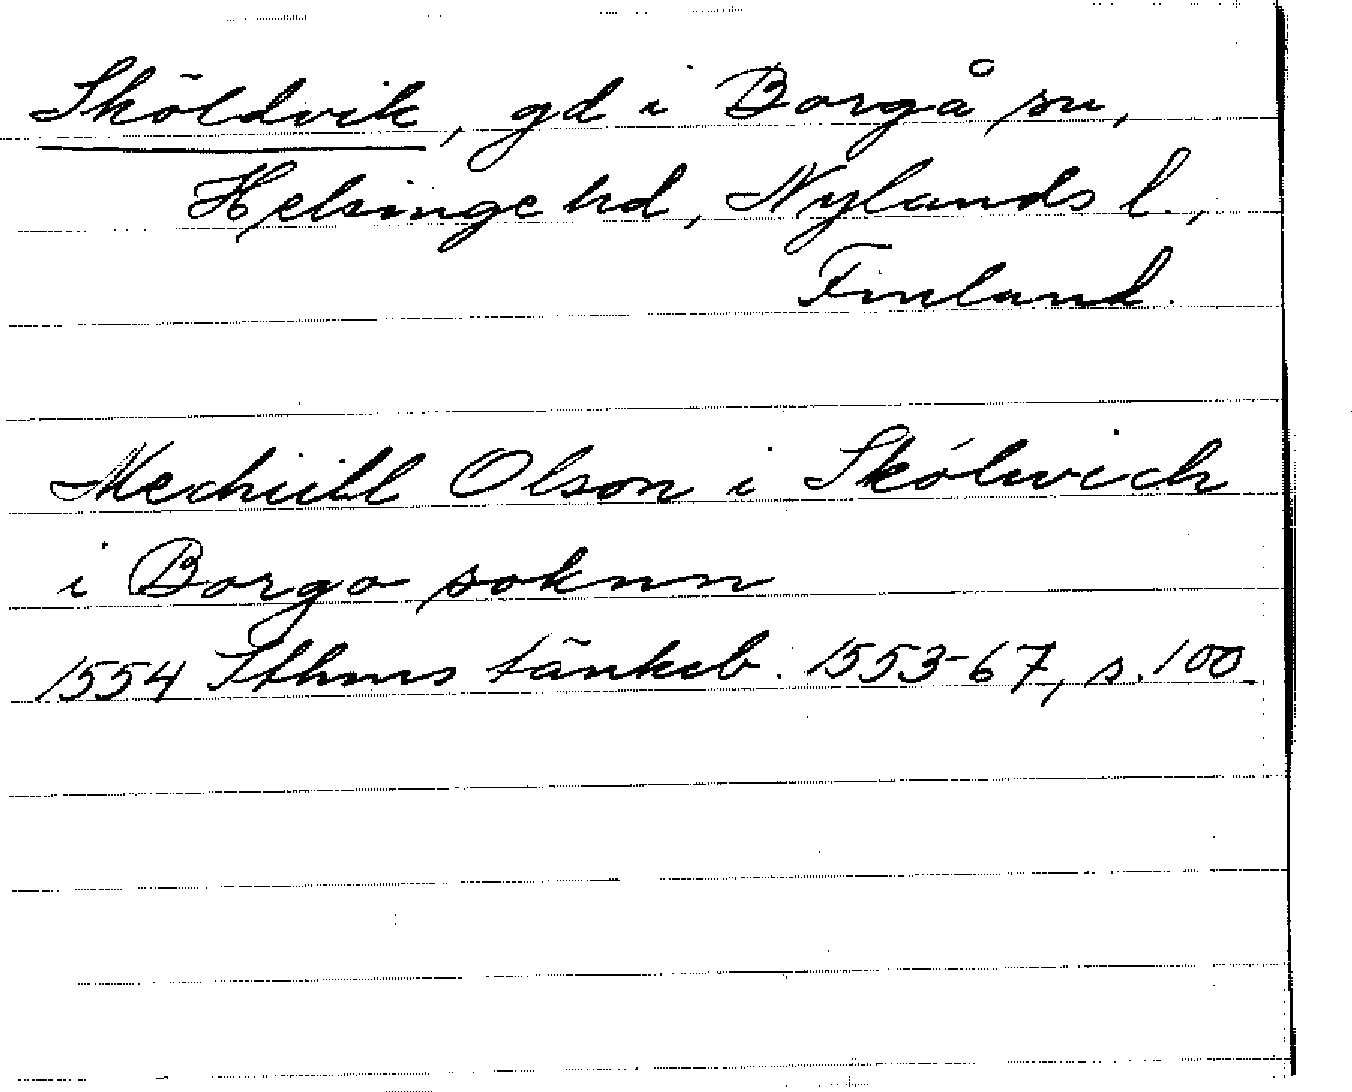 Sköldvik, gd i Borgå sn,
Helsinge hd, Nylands l.,
Finland.
Mechiill Olson i Skólwich
i Borgo soknn
1554 Sthms tänkeb. 1553-67, s. 100.